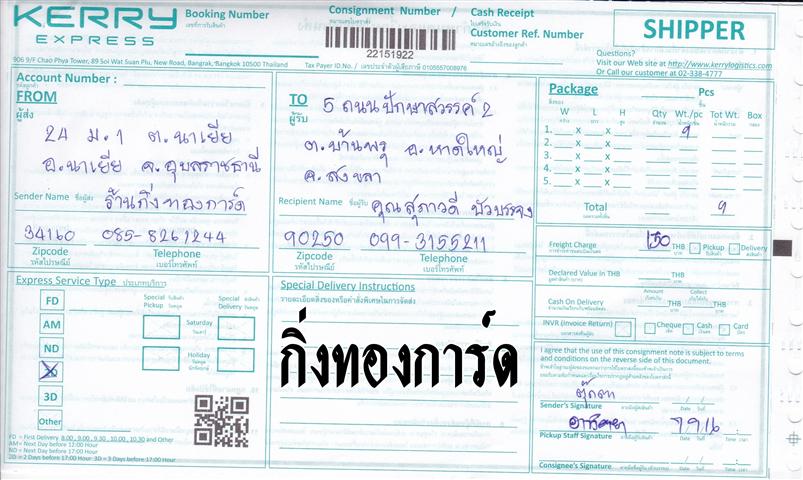 KERRY
EXPRESS
Booking Number
เลขที่การรับสินค้า
Consignment Number /
หมายเลขใบตราส่ง
22151922
Cash Receipt
ใบเสร็จรับเงิน
Customer Ref. Number
หมายเลขอ้างอิงของลูกค้า
SHIPPER
906 9/F Chao Phya Tower, 89 Soi Wat Suan Plu, New Road, Bangrak, Bangkok 10500 Thailand
Tax Payer ID.No. / เลขประจำตัวผู้เสียภาษี 0105557008976
Questions?
Visit our Web site at http://www.kerrylogistics.com
Or Call our customer at 02-338-4777
Account Number :
FROM
ผู้ส่ง
24 ม.1 ต.นาเยีย
อ.นาเยีย จ.อุบลราชธานี
Sender Name ชื่อผู้ส่ง ร้านกิ่งทองการ์ด
34160 085-8261244
Zipcode Telephone
รหัสไปรษณีย์ เบอร์โทรศัพท์
TO
ผู้รับ
5 ถนนปักษาสวรรค์ 2
ต.บ้านพรุ อ.หาดใหญ่
จ.สงขลา
Recipient Name ชื่อผู้รับ คุณสุภาวดี บัวบรรจง
90250 099-3155211
Zipcode Telephone
รหัสไปรษณีย์ เบอร์โทรศัพท์
Package Pcs
W L H Qty Wt./pc Tot Wt. Box
1. x x 9
2. x x
3. x x
4. x x
5. x x
Total 9
Freight Charge 150 THB Pickup Delivery
Declared Value in THB THB
Amount Collect
Cash On Delivery THB THB
INVR (Invoice Return) Cheque Cash Card
Express Service Type ประเภทบริการ
FD
AM
ND
2D
3D
Other
Special Pickup
Special Delivery
Saturday
Holiday
FD = First Delivery 8.00 , 9.00 , 9.30 , 10.00 , 10.30 and Other
AM = Next Day Delivery before 12:00 Hour
ND = Next Day Delivery before 17:00 Hour
2D = 2 Days before 17:00 Hour 3D = 3 Days before 17:00 Hour
Special Delivery Instructions
รายละเอียดสิ่งของหรือคำสั่งพิเศษในการจัดส่ง
กิ่งทองการ์ด
I agree that the use of this consignment note is subject to terms
and conditions on the reverse side of this document.
ตุ๊กตา
Sender's Signature
Pickup Staff Signature 7 9 16
Consignee's Signature